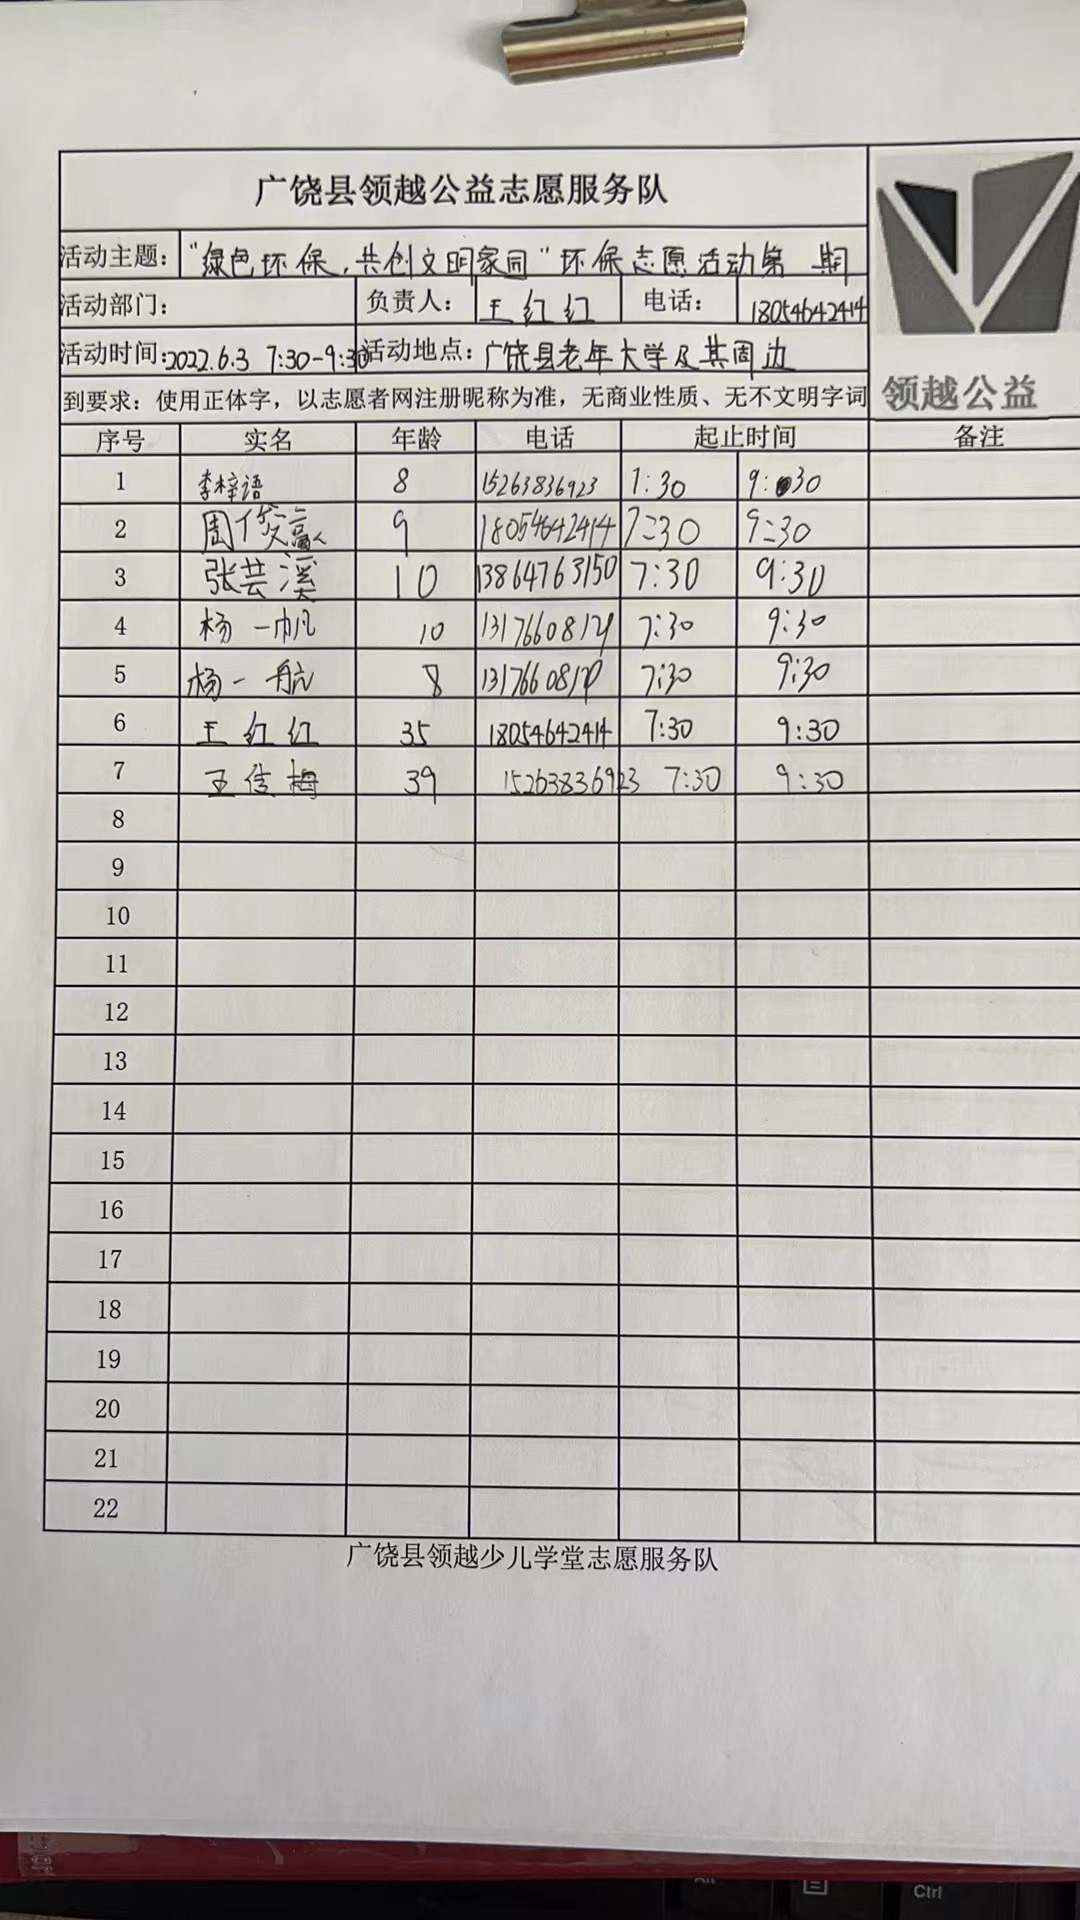 广饶县领越公益志愿服务队
活动主题：“绿色环保，共创文明家园”环保志愿活动第 期
活动部门： 负责人： 王红红 电话： 18054642414
活动时间：2022.6.3 7:30-9:30 活动地点：广饶县老年大学及其周边
到要求：使用正体字，以志愿者网注册昵称为准，无商业性质、无不文明字词
领越公益
序号 实名 年龄 电话 起止时间 备注
1 李梓语 8 15263836923 7:30 9:30
2 周俊赢 9 18054642414 7:30 9:30
3 张芸溪 10 13864763150 7:30 9:30
4 杨一帆 10 7:30 9:30
5 杨一航 8 7:30 9:30
6 王红红 35 18054642414 7:30 9:30
7 王佳梅 39 15263836923 7:30 9:30
8
9
10
11
12
13
14
15
16
17
18
19
20
21
22
广饶县领越少儿学堂志愿服务队
Ctrl